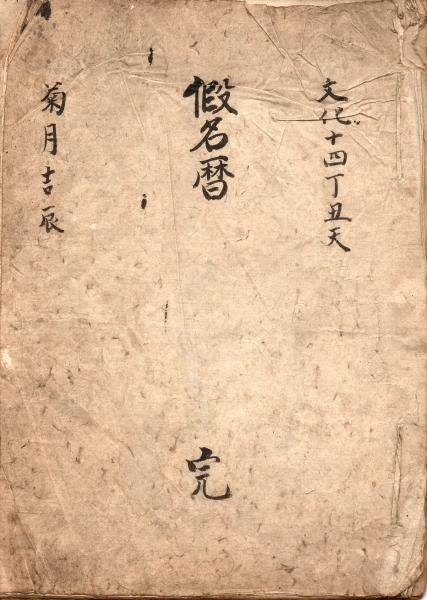 文化十四丁丑天
假名暦 完
菊月吉辰